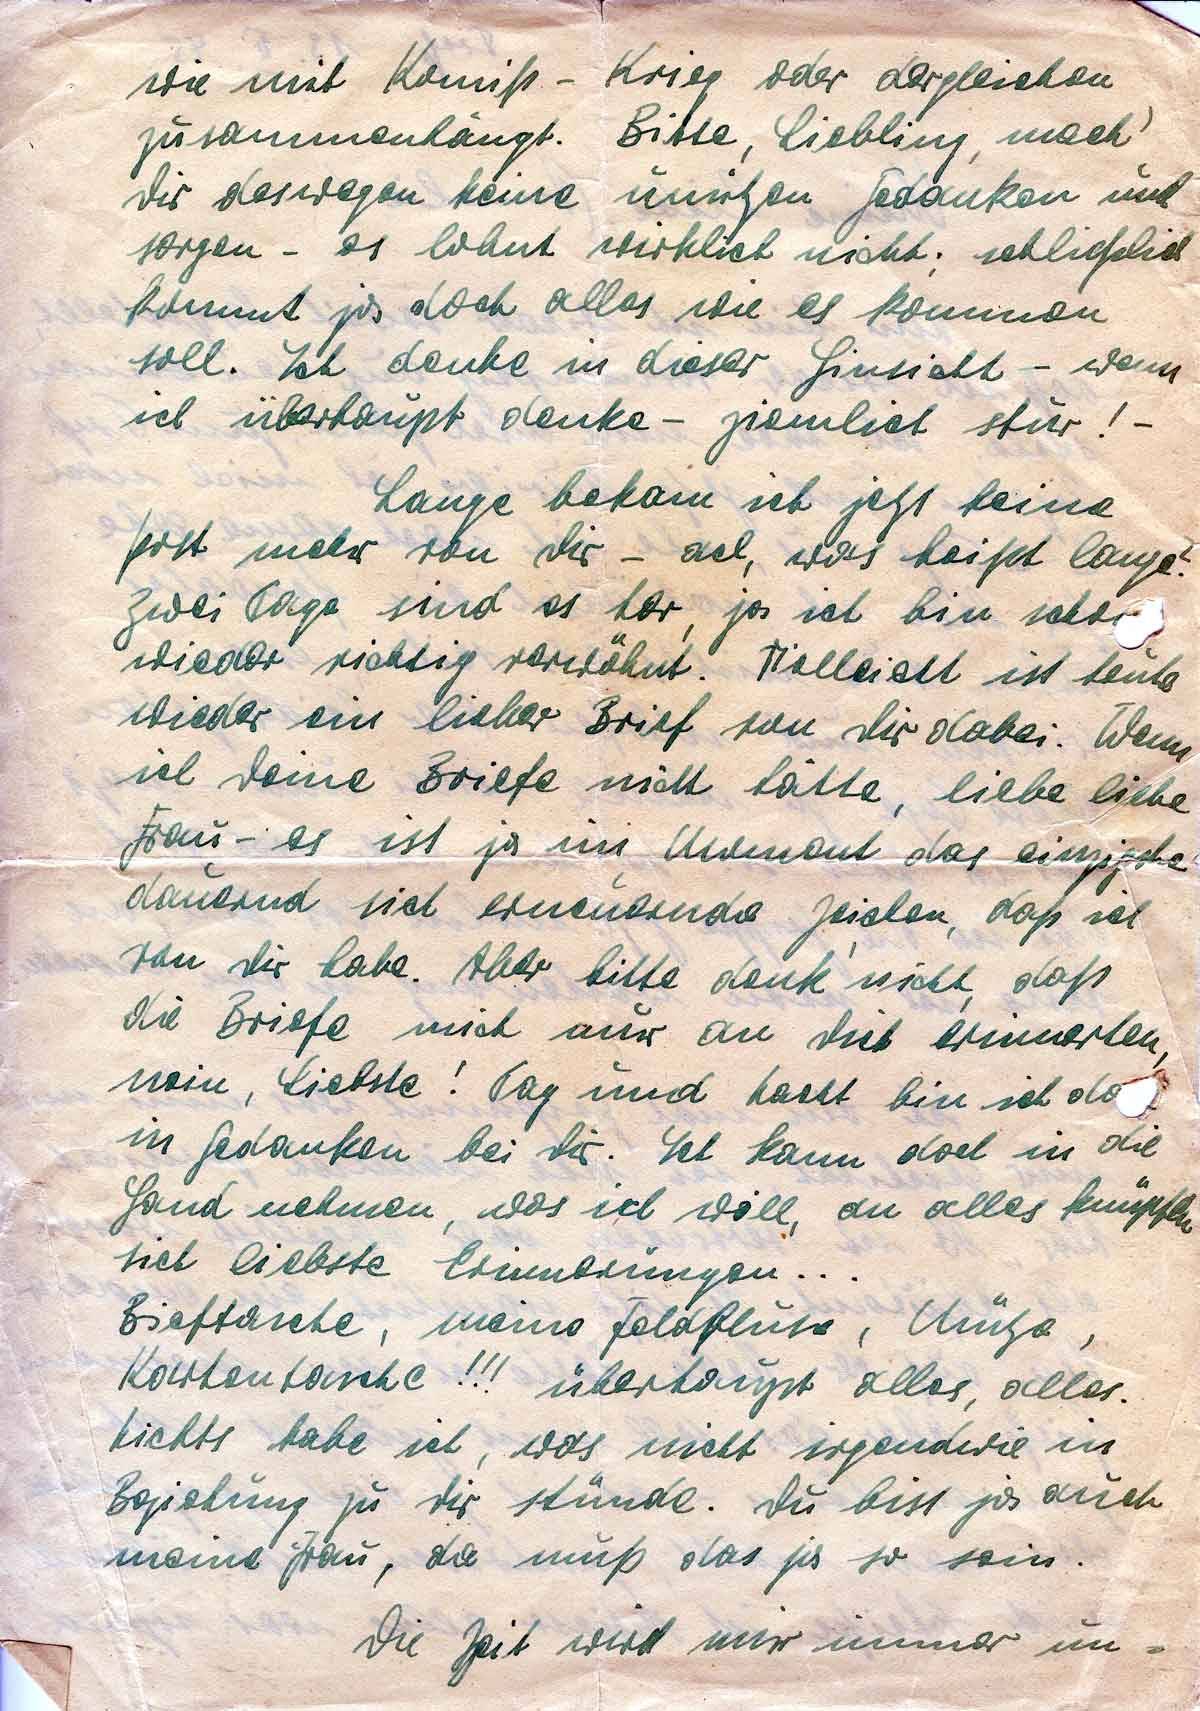 wie mit Komiß - Krieg oder dergleichen
zusammenhängt. Bitte, Liebling, mach'
Dir deswegen keine unnützen Gedanken und
sorgen - es lohnt wirklich nicht; schließlich
kommt ja doch alles wie es kommen
soll. Ich denke in dieser Hinsicht - wenn
ich überhaupt denke - ziemlich stur! -
Lange bekam ich jetzt keine
Post mehr von Dir - ach, was heißt lange?
Zwei Tage sind es her, ja ich bin schon
wieder richtig verwöhnt. Vielleicht ist heute
wieder ein lieber Brief von Dir dabei. Wenn
ich Deine Briefe nicht hätte, liebe liebe
Frau - es ist ja im Moment das einzigste
dauernd sich erneuernde Zeichen, daß ich
von Dir habe. Aber bitte denk' nicht, daß
die Briefe mich nur an Dich erinnerten,
nein, Liebste! Tag und Nacht bin ich do
in Gedanken bei Dir. Ich kann doch in die
Hand nehmen, was ich will, an alles knüpfen
sich liebste Erinnerungen...
Brieftasche, meine Feldbluse, Mütze,
Kartentasche!!! überhaupt alles, alles.
Nichts habe ich, was nicht irgendwie in
Beziehung zu Dir stünde. Du bist ja auch
meine Frau, da muß das ja so sein.
Die Zeit wird mir immer un-